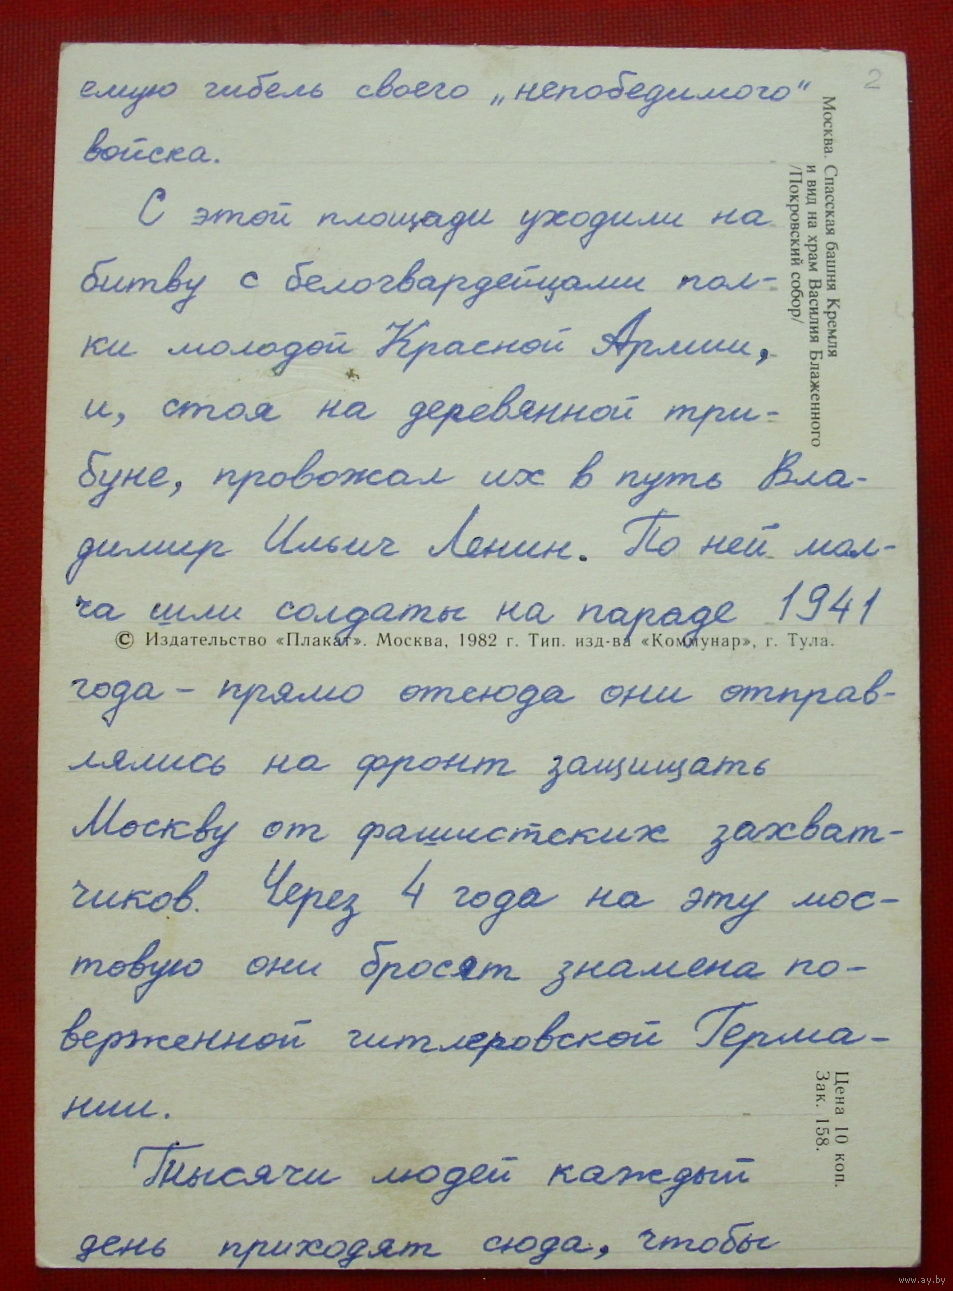 2
емую гибель своего „непобедимого"
войска.
С этой площади уходили на
битву с белогвардейцами пол-
ки молодой Красной Армии,
и, стоя на деревянной три-
буне, провожал их в путь Вла-
димир Ильич Ленин. По ней мол-
ча шли солдаты на параде 1941
© Издательство «Плакат». Москва, 1982 г. Тип. изд-ва «Коммунар», г. Тула.
года – прямо отсюда они отправ-
лялись на фронт защищать
Москву от фашистских захват-
чиков. Через 4 года на эту мос-
товую они бросят знамена по-
верженной гитлеровской Герма-
нии.
Тысячи людей каждый
день приходят сюда, чтобы
Москва. Спасская башня Кремля
и вид на храм Василия Блаженного
/Покровский собор/
Цена 10 коп.
Зак. 158.
www.ay.by